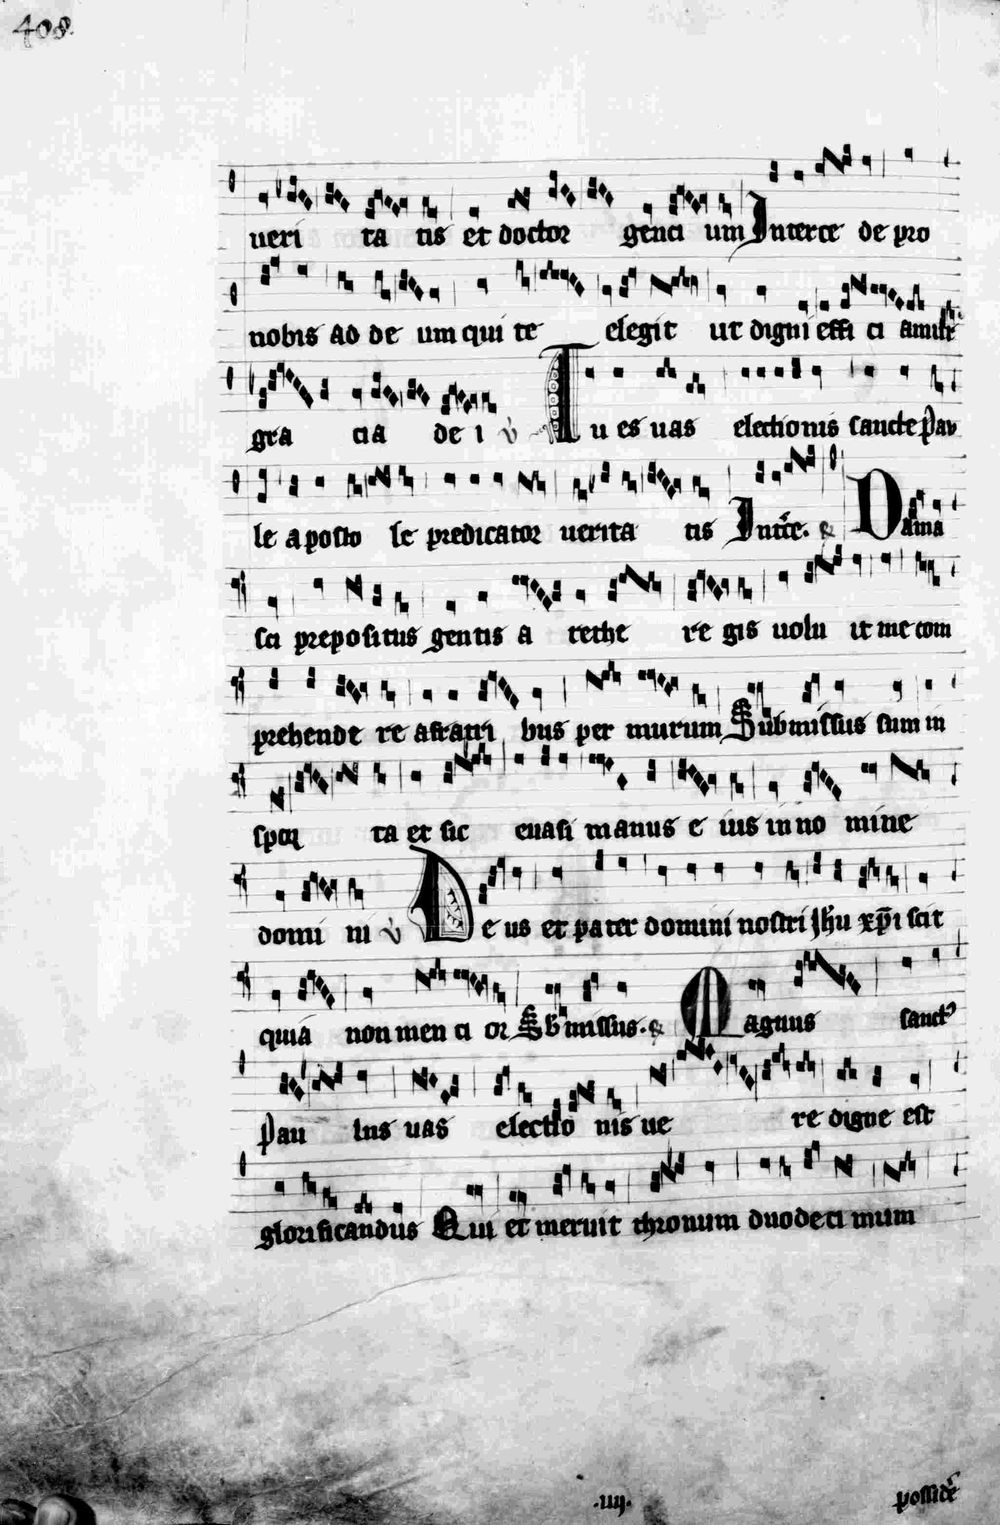 408.
ueri ta tis et doctor genti um Interce de pro
nobis ad de um qui te elegit ut digni effi ci amur
gra cia de i v Tu es uas electionis sancte Pau
le aposto le predicator uerita tis Interce. R Dama
sci prepositus gentis a rethe re gis uolu it me com
prehende re a fratri bus per murum Submissus sum in
spor ta et sic euasi manus e ius in no mine
domi ni v De us et pater domini nostri Jhu xpi scit
quia non men ci or Submissus. R Magnus sanctus
Pau lus uas electio nis ue re digne est
glorificandus Qui et meruit thronum duodeci mum
.iiij. posside